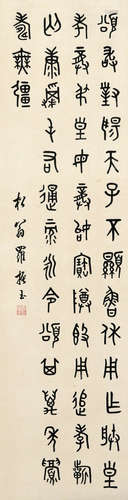 頌敢對揚天子不顯魯休用乍朕皇
考龏弔皇母龏姒寶尊簋用追孝祈
匃康屯右通彔永令頌其萬年眉
壽無疆
松翁羅振玉